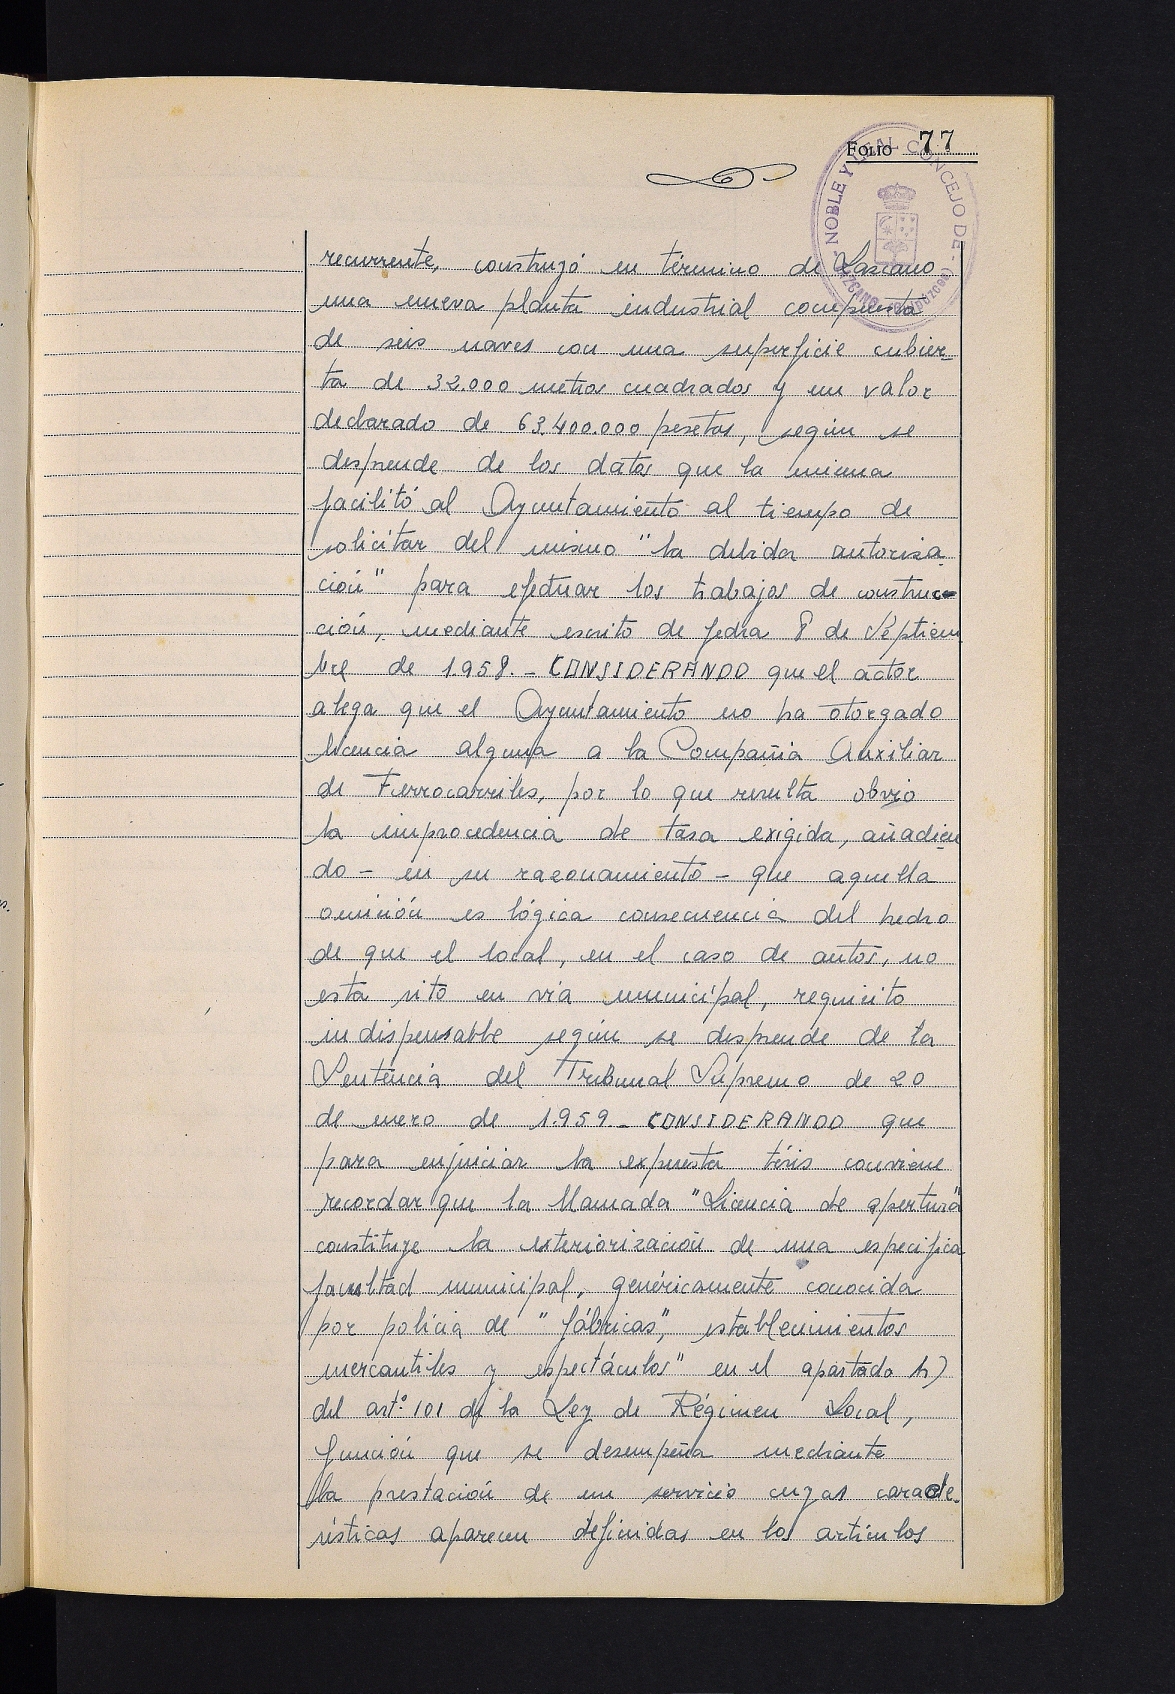 FOLIO 77
NOBLE Y LEAL CONCEJO DE - LAZCANO - (GUIPUZCOA)
recurrente, construyó en término de Lazcano
una nueva planta industrial compuesta
de seis naves con una superficie cubier-
ta de 32.000 metros cuadrados y un valor
declarado de 63.400.000 pesetas, según se
desprende de los datos que la misma
facilitó al Ayuntamiento al tiempo de
solicitar del mismo "la debida autoriza
ción" para efectuar los trabajos de construc-
ción, mediante escrito de fecha 8 de Septiem
bre de 1.958.- CONSIDERANDO que el actor
alega que el Ayuntamiento no ha otorgado
licencia alguna a la Compañia Auxiliar
de Ferrocarriles, por lo que resulta obvio
la improcedencia de tasa exigida, añadien
do - en su razonamiento - que aquella
omisión es lógica consecuencia del hecho
de que el local, en el caso de autos, no
esta sito en vía municipal, requisito
indispensable según se desprende de la
Sentencia del Tribunal Supremo de 20
de enero de 1.959.- CONSIDERANDO que
para enjuiciar la expuesta tésis conviene
recordar que la llamada "Licencia de apertura"
constituye la exteriorización de una especifica
facultad municipal, genéricamente conocida
por policia de "fábricas", establecimientos
mercantiles y espectáculos" en el apartado h)
del artº. 101 de la Ley de Régimen Local,
función que se desempeña mediante
la prestación de un servicio cuyas caracte-
rísticas aparecen definidas en los artículos